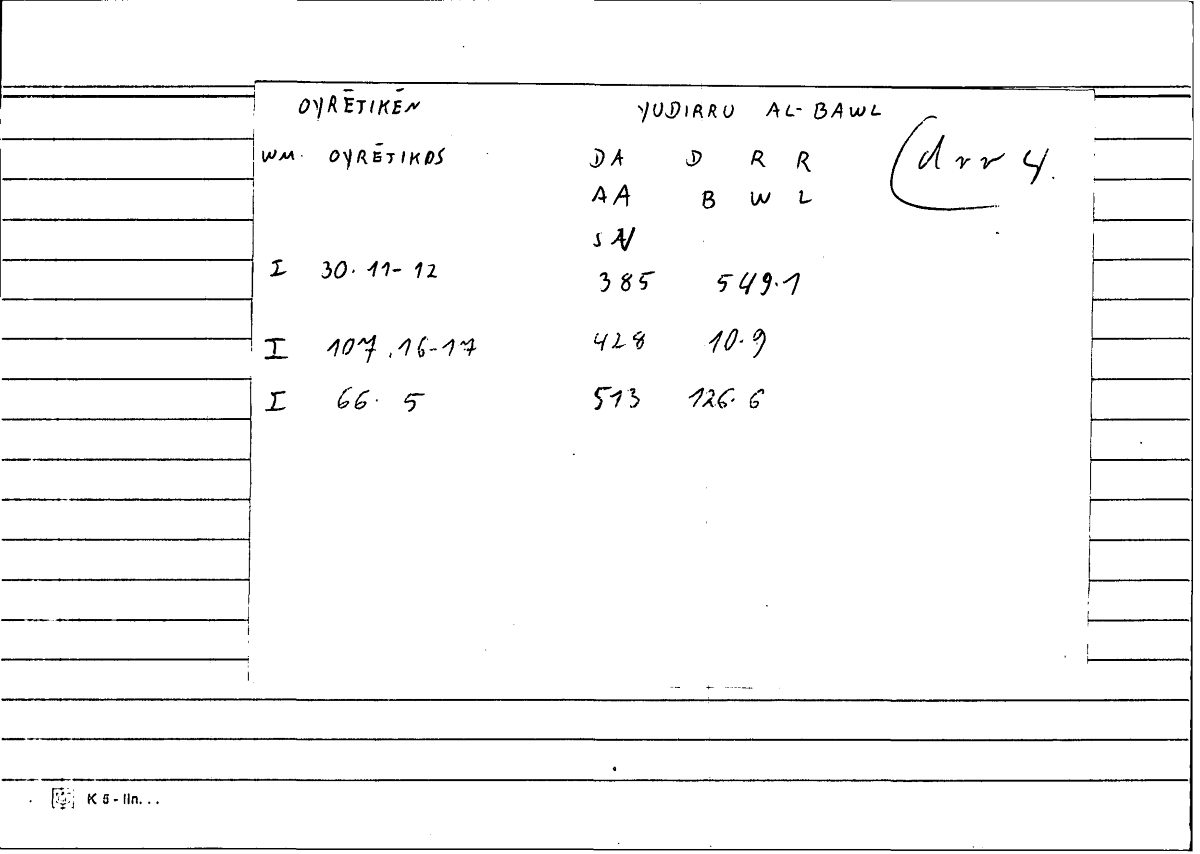 OYRĒTIKĒN YUDIRRU AL-BAWL
WM. OYRĒTIKOS DA D R R (drr 4.
AA B W L
SN
I 30.11-12 385 549.1
I 107.16-17 428 10.9
I 66.5 513 126.6
K 5 - lin...